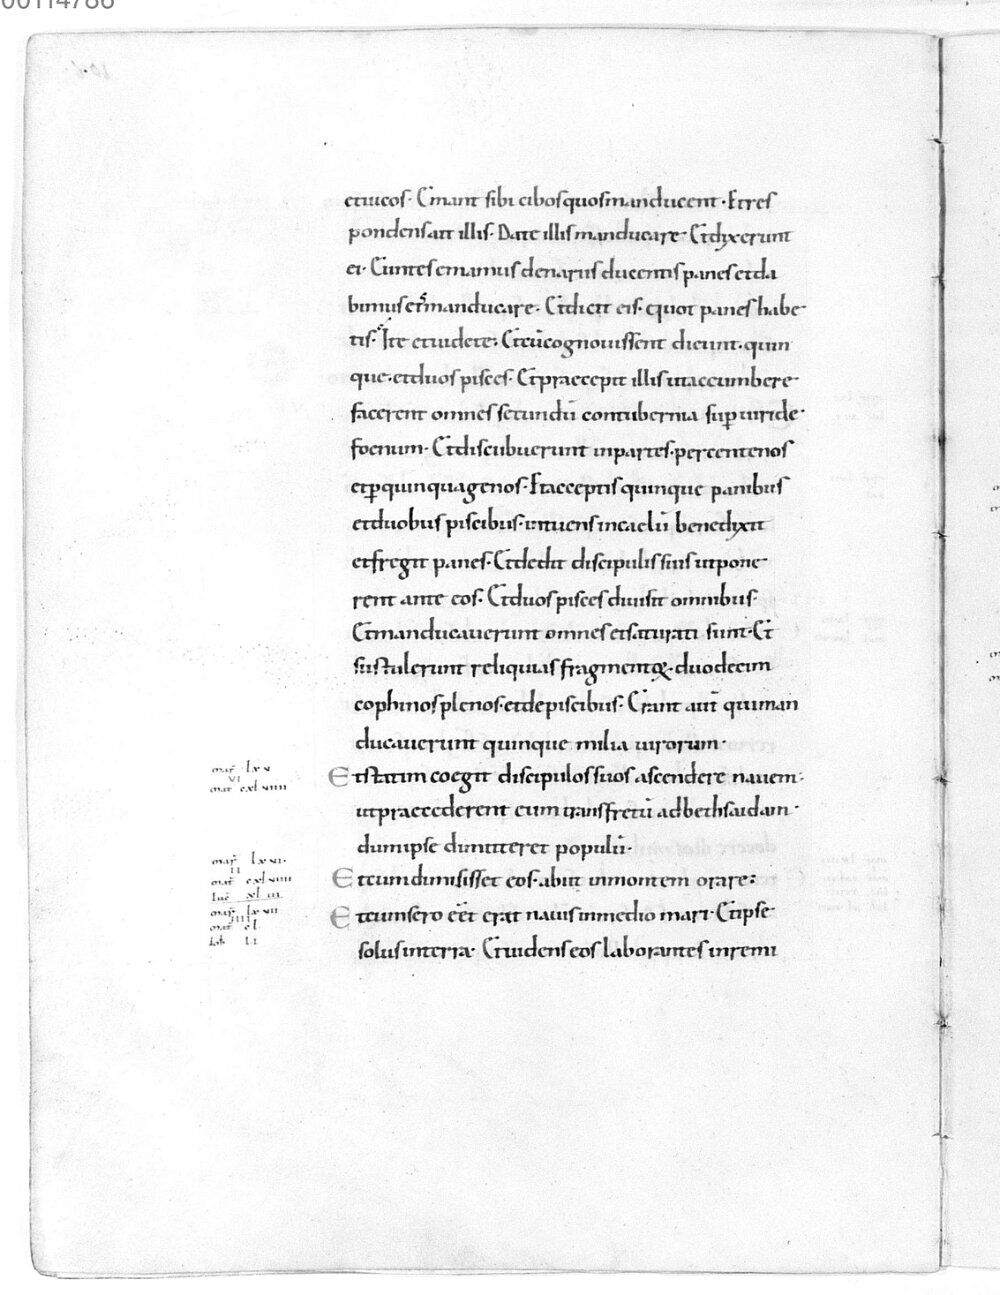 00114786
et uicos· Emant sibi cibos quos manducent· Et res
pondens ait illis· Date illis manducare· Et dixerunt
ei· Euntes emamus denariis ducentis panes et da
bimus eis manducare· Et dicit eis· quot panes habe
tis· Ite et uidete· Et cū cognouissent dicunt· quin
que· et duos pisces· Et praecepit illis ut accumbere
facerent omnes secundū contubernia sup uiride
foenum· Et discubuerunt in partes· per centenos
et p quinquagenos· Et acceptis quinque panibus
et duobus piscibus· intuens in caelū benedixit
et fregit panes· Et dedit discipulis suis ut pone
rent ante eos· Et duos pisces diuisit omnibus
Et manducauerunt omnes et saturati sunt· Et
sustulerunt reliquias fragmentoꝝ· duodecim
cophinos plenos· et de piscibus· Erant aut̄ qui man
ducauerunt quinque milia uirorum·
mar̄ lxv Et statim coegit discipulos suos ascendere nauem·
VI
mat cxlviiii
ut praecederent eum trans fretū ad bethsaidam·
dum ipse dimitteret populū·
mar̄ lxvi· Et cum dimisisset eos· abiit in montem orare:
II
mat cxlviiii
Luc xliii
mar̄ lxvii Et cum sero eēt erat nauis in medio mari· Et ipse
IIII
mat cl
Ioh LI
solus in terra· Et uidens eos laborantes in remi